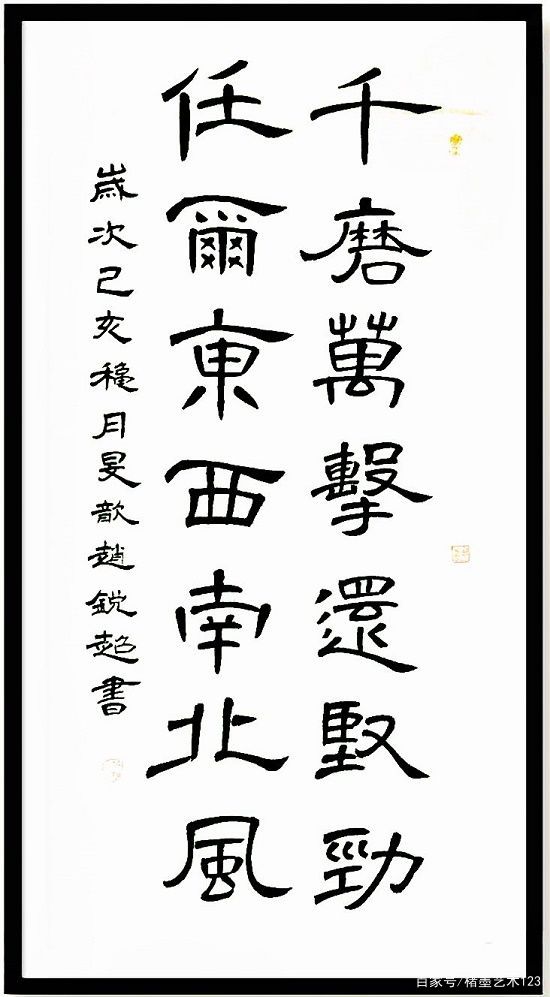 千磨萬擊還堅勁
任爾東西南北風
歲次己亥穐月旻歆趙銳超書
百家号/楮墨艺术123